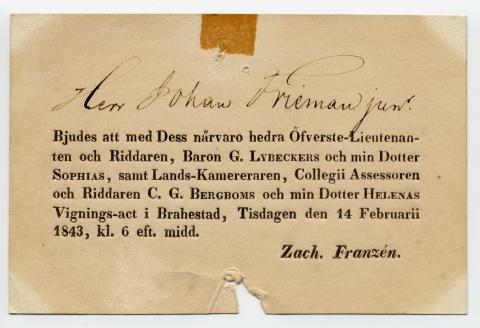 Herr Johan Frieman junr.
Bjudes att med Dess närvaro hedra Öfverste-Lieutenan-
ten och Riddaren, Baron G. LYBECKERS och min Dotter
SOPHIAS, samt Lands-Kamereraren, Collegii Assessoren
och Riddaren C. G. BERGBOMS och min Dotter HELENAS
Vignings-act i Brahestad, Tisdagen den 14 Februarii
1843, kl. 6 eft. midd.
Zach. Franzén.